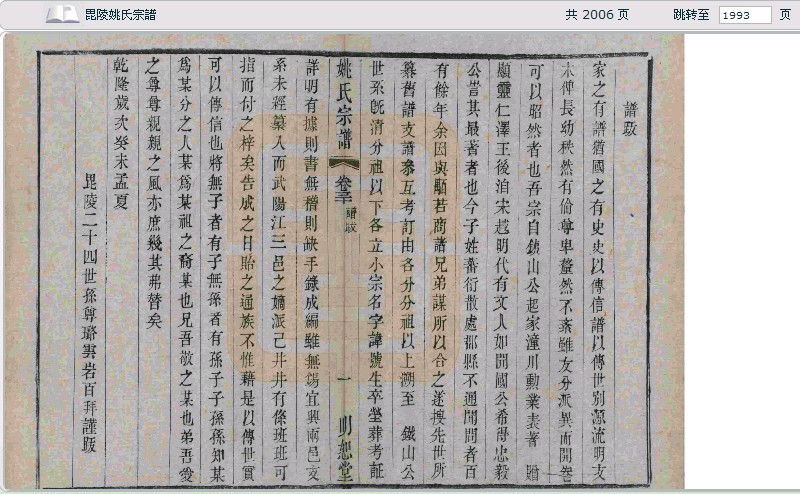 毘陵姚氏宗譜
共 2006 页
跳转至 1993 页
譜跋
家之有譜猶國之有史史以傳信譜以傳世別源流明支
末俾長幼秩然有倫尊卑釐然不紊雖支分派異而開卷
可以昭然者也吾宗自鐵山公起家潼川勳業表著 贈
顯靈仁澤王後洎宋越明代有文人如開國公希得忠毅
公訔其最著者也今子姓蕃衍散處郡縣不通聞問者百
有餘年余因與顒若商諸兄弟謀所以合之遂搜先世所
纂舊譜支譜叅互考訂由各分分祖以上溯至 鐵山公
世系旣清分祖以下各立小宗名字諱號生卒塋葬考証
姚氏宗譜 卷 譜跋 一 明恕堂
詳明有據則書無稽則缺手錄成編雖無錫宜興兩邑支
系未經纂入而武陽江三邑之嫡派已井井有條班班可
指而付之梓矣告成之日貽之通族不惟藉是以傳世實
可以傳信也將無子者有子無孫者有孫子子孫孫知某
爲某分之人某爲某祖之裔某也兄吾敬之某也弟吾愛
之尊尊親親之風亦庶幾其弗替矣
乾隆歲次癸未孟夏
毘陵二十四世孫尊璐雲岩百拜謹跋